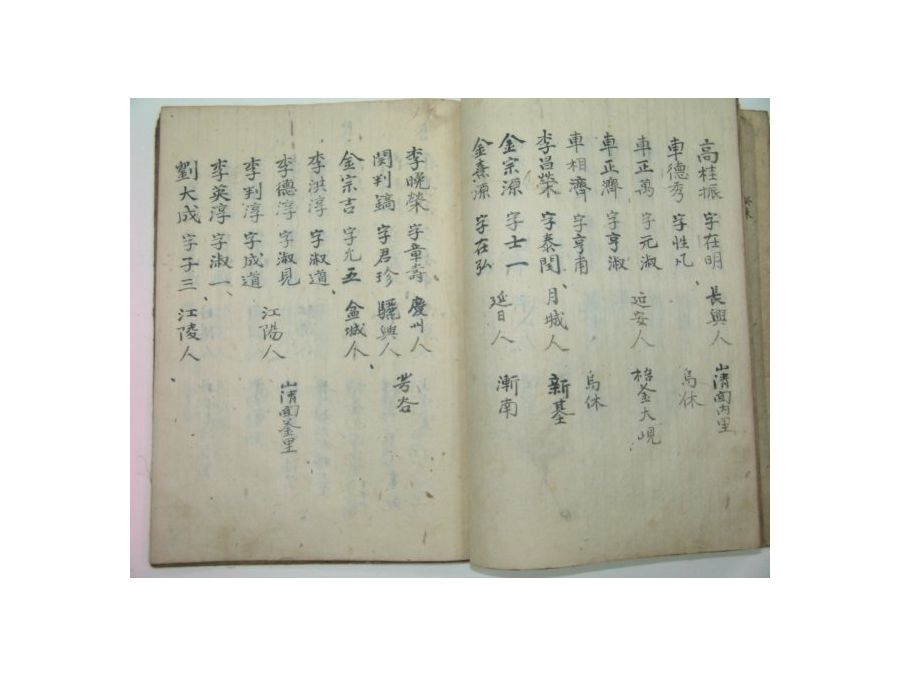 高桂振 字在明 長興人 山清面內里
車德秀 字性凡 烏休
車正萬 字元淑 延安人 釜大峴
車正濟 字亨淑
車相濟 字亨甫 烏休
李昌榮 字泰閔 月城人 新基
金宗源 字士一
金熹源 字在弘 延日人 漸南
李晚榮 字章壽 慶州人
閔判鎬 字君珍 驪興人 芳谷
金宗吉 字允五 金城人
李洪淳 字淑道
李德淳 字淑見 江陽人 山清面釜里
李判淳 字成道
李英淳 字淑一
劉大成 字子三 江陵人